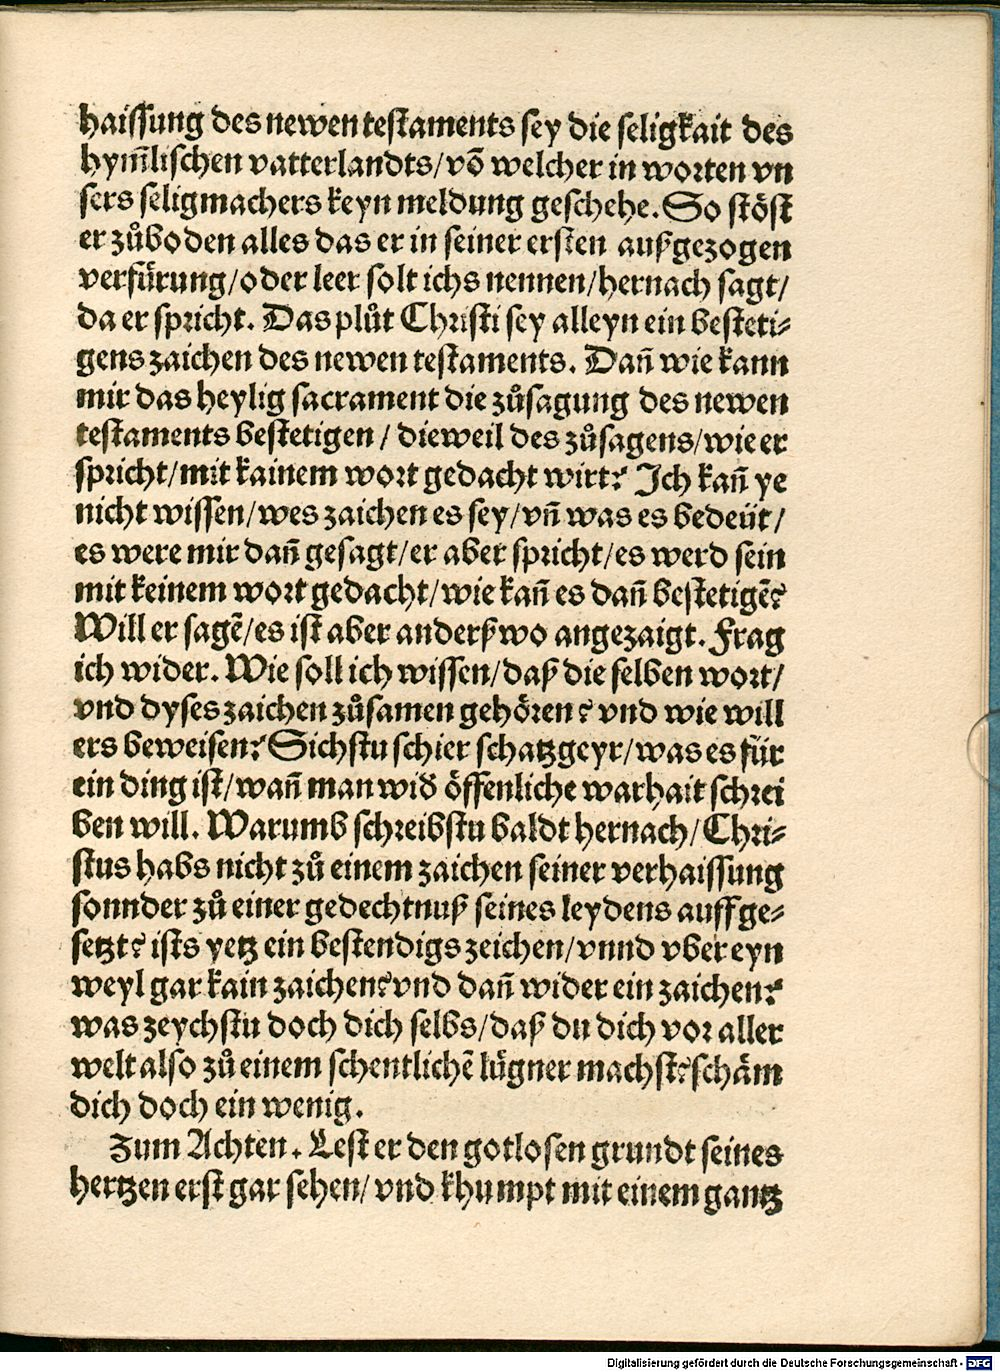 haissung des newen testaments sey die seligkait des
hym̃lischen vatterlandts/võ welcher in worten vn
sers seligmachers keyn meldung geschehe. So stöst
er zůboden alles das er in seiner ersten außgezogen
verfürung/oder leer solt ichs nennen/hernach sagt/
da er spricht. Das plůt Christi sey alleyn ein besteti⸗
gens zaichen des newen testaments. Dañ wie kann
mir das heylig sacrament die zůsagung des newen
testaments bestetigen/ dieweil des zůsagens/wie er
spricht/mit kainem wort gedacht wirt? Ich kañ ye
nicht wissen/wes zaichen es sey/vñ was es bedeüt/
es were mir dañ gesagt/er aber spricht/es werd sein
mit keinem wort gedacht/wie kañ es dañ bestetigẽ?
Will er sagẽ/es ist aber anderßwo angezaigt. Frag
ich wider. Wie soll ich wissen/daß die selben wort/
vnd dyses zaichen zůsamen gehören? vnd wie will
ers beweisen? Sichstu schier schatzgeyr/was es für
ein ding ist/wañ man wid̕ öffenliche warhait schrei
ben will. Warumb schreibstu baldt hernach/Chri⸗
stus habs nicht zů einem zaichen seiner verhaissung
sonnder zů einer gedechtnuß seines leydens auffge⸗
setzt? ists yetz ein bestendigs zeichen/vnnd vber eyn
weyl gar kain zaichen? vnd dañ wider ein zaichen?
was zeychstu doch dich selbs/daß du dich vor aller
welt also zů einem schentlichẽ lügner machst? schäm
dich doch ein wenig.
Zum Achten. Lest er den gotlosen grundt seines
hertzen erst gar sehen/ vnd khumpt mit einem gantz
Digitalisierung gefördert durch die Deutsche Forschungsgemeinschaft - DFG